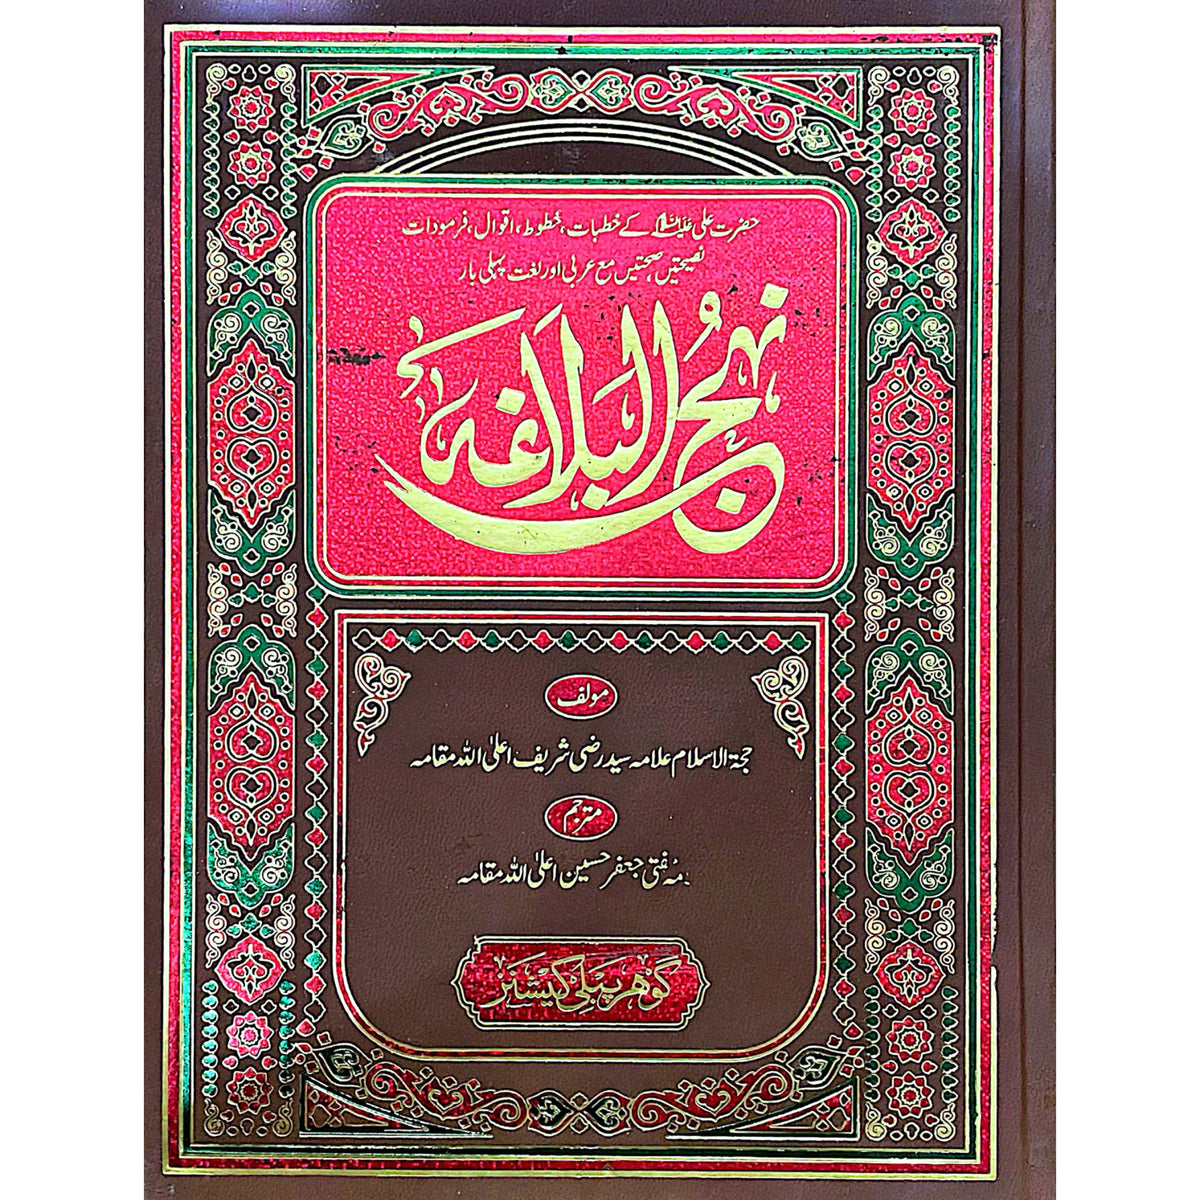 حضرت علی علیہ السلام کے خطبات، خطوط، اقوال، فرمودات
نصیحتیں، صحتیں مع عربی اور لغت پہلی بار
نہج البلاغہ
مولف
حجۃ الاسلام علامہ سید رضی شریف اعلیٰ اللہ مقامہ
مترجم
مفتی جعفر حسین اعلیٰ اللہ مقامہ
گوہر پبلی کیشنز